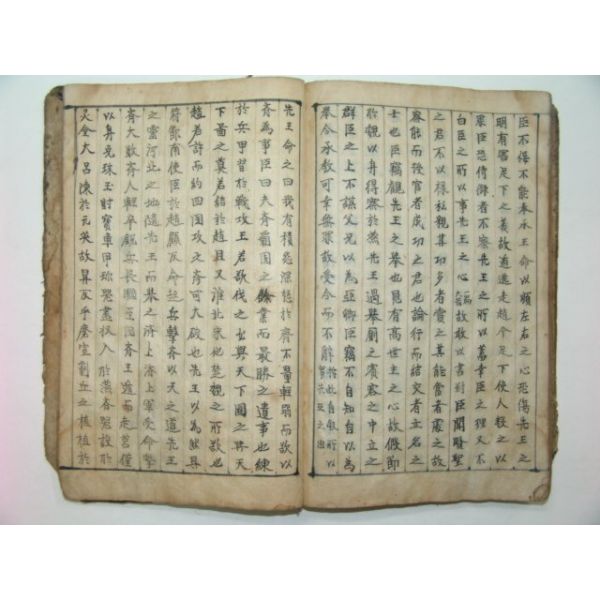 臣不佞不能奉承王命以順左右之心恐傷先王之
明有害足下之義故遁逃走趙今足下使人數之以
罪臣恐侍御者不察先王之所以畜幸臣之理又不
白臣之所以事先王之心故敢以書對臣聞賢聖
之君不以祿私親其功多者賞之其能當者處之故
察能而授官者成功之君也論行而結交者立名之
士也臣竊觀先王之舉也見有高世主之心故假節
於魏以身得察於燕先王過舉厠之賓客之中立之
群臣之上不謀父兄以為亞卿臣竊不自知自以為
奉令承教可幸無罪故受令而不辭
先王命之曰我有積怨深怒於齊不量輕弱而欲以
齊為事臣曰夫齊霸國之餘業而最勝之遺事也練
於兵甲習於戰攻王若欲伐之必與天下圖之與天
下圖之莫若結於趙且又淮北宋地楚魏之所欲也
趙若許而約四國攻之齊可大破也先王以為然具
符節南使臣於趙顧反命起兵擊齊以天之道先王
之靈河北之地隨先王而舉之濟上濟上軍受命擊
齊大敗齊人輕卒銳兵長驅至國齊王遁而走莒僅
以身免珠玉財寶車甲珍器盡收入於燕齊器設於
大呂陳於元英故鼎反乎磨室薊丘之植植於